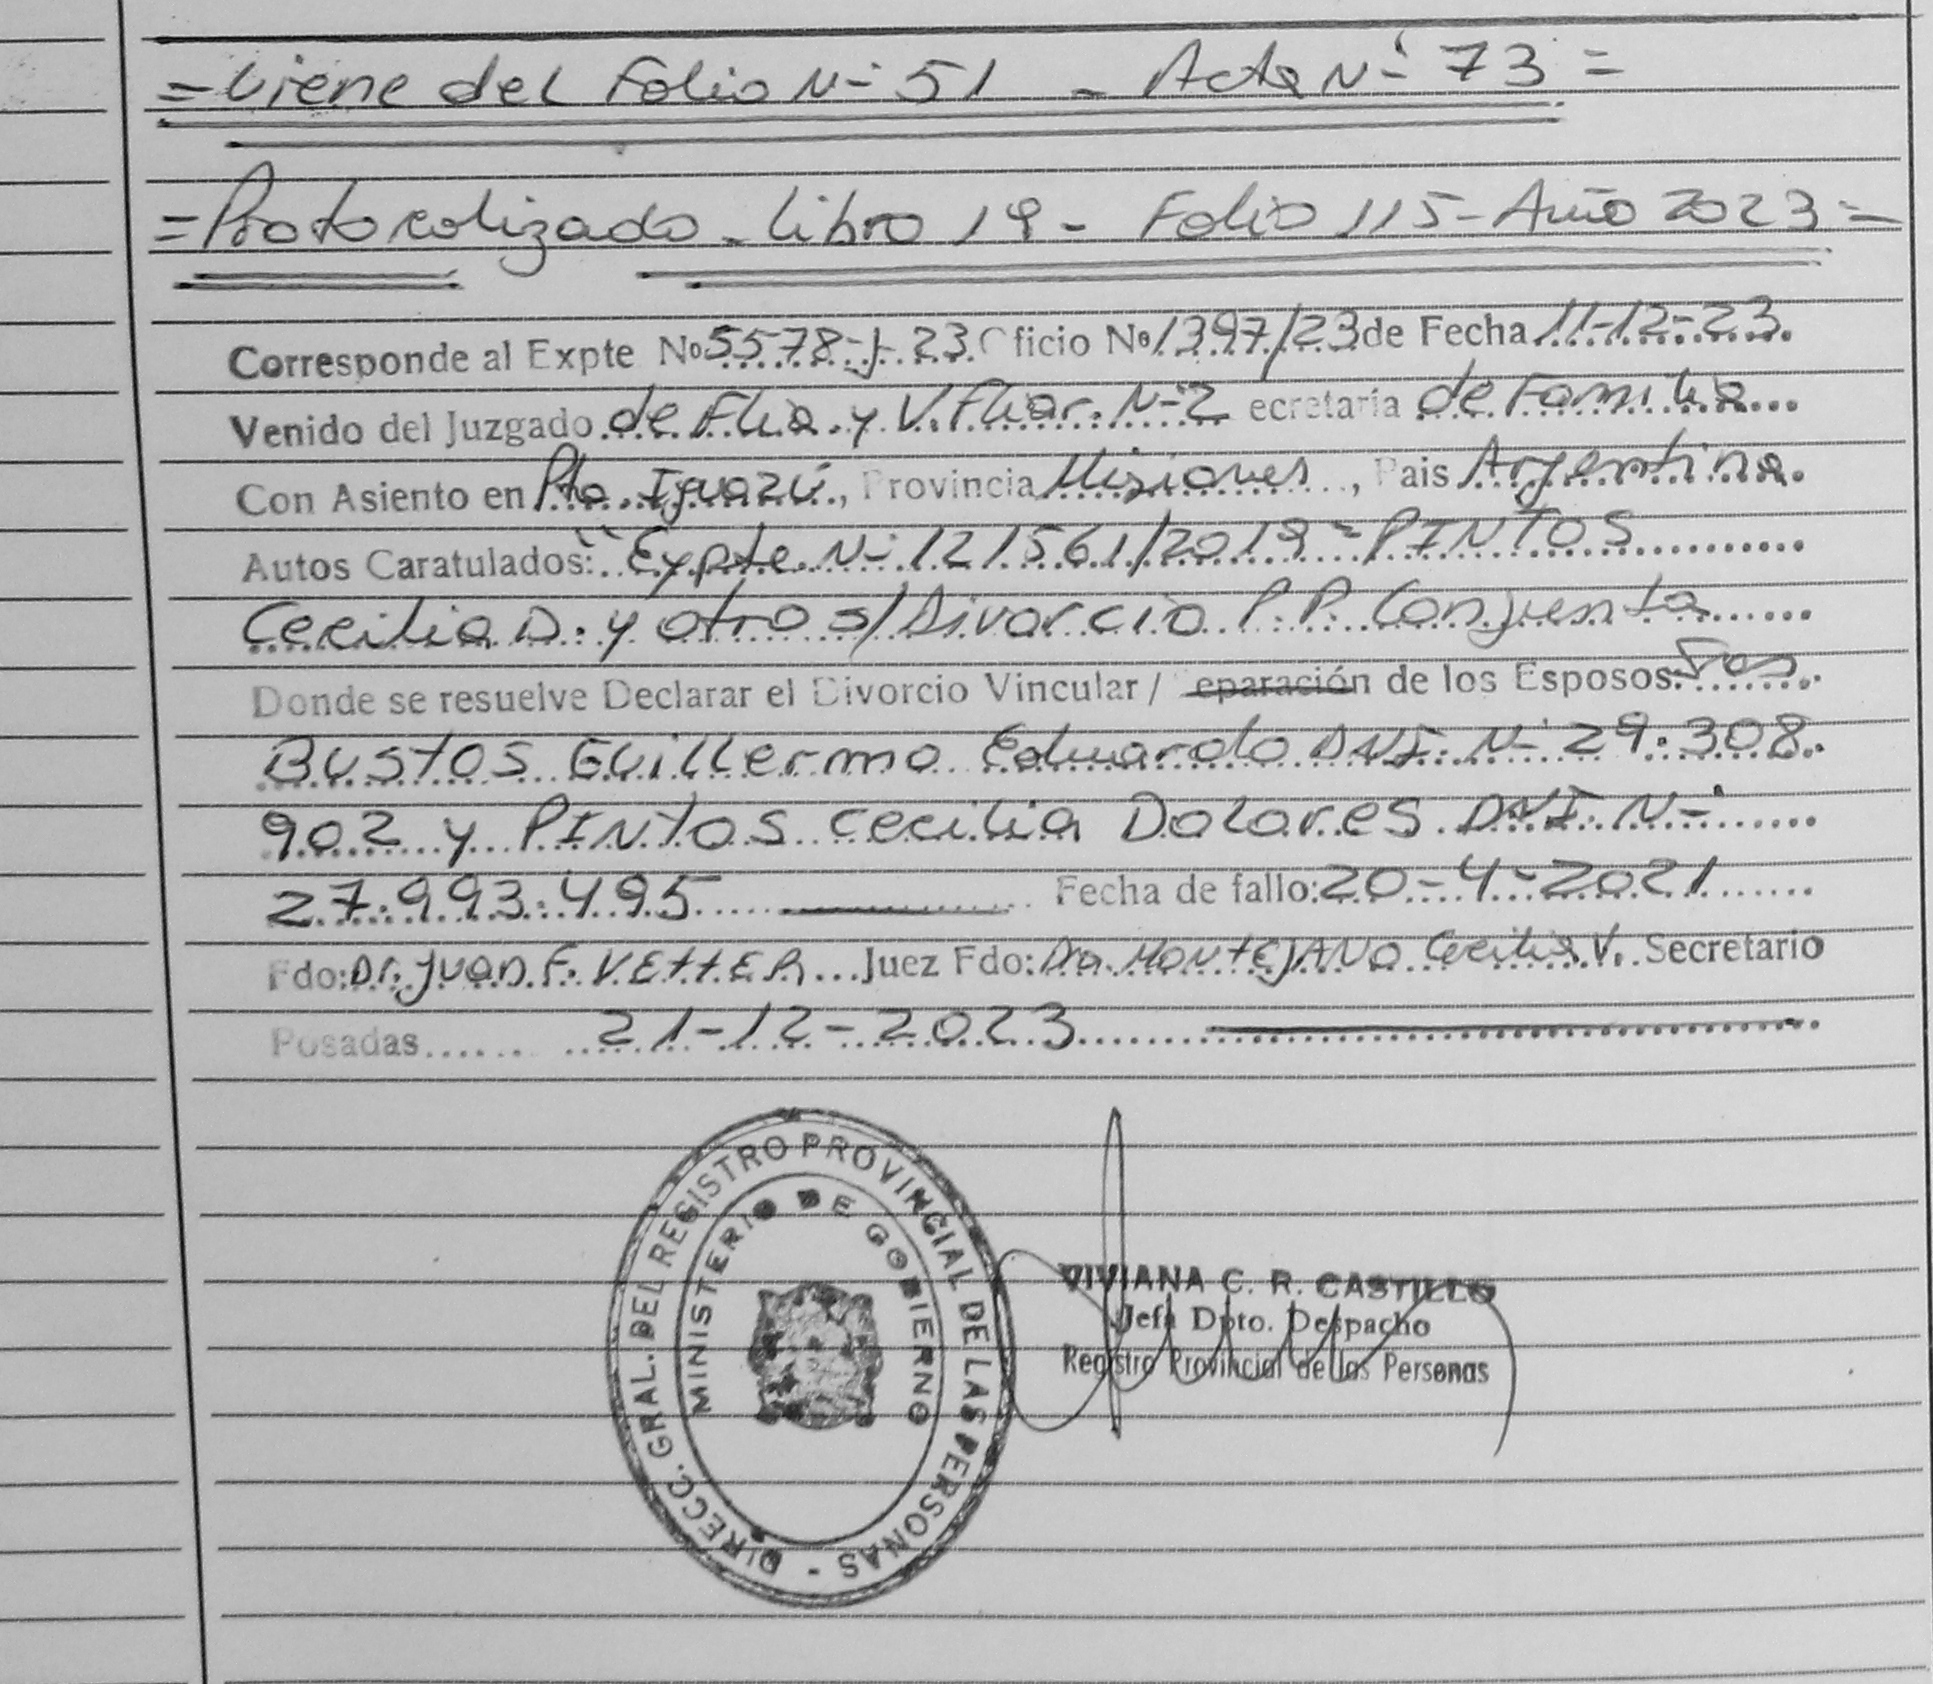 = Viene del Folio N° 51 - Acta N° 73 =
= Protocolizado - Libro 19 - Folio 115 - Año 2023 =
Corresponde al Expte Nº 5578-J-23 Oficio Nº 1397/23 de Fecha 11-12-23.
Venido del Juzgado de Flia. y V. Fliar. N-2 ecretaría de Familia
Con Asiento en Pto. Iguazú, Provincia Misiones, Pais Argentina.
Autos Caratulados: "Expte. N° 121561/2019 - PINTOS
Cecilia D. y otro s/ Divorcio P.P. Conjunta
Donde se resuelve Declarar el Divorcio Vincular / eparación de los Esposos:
BUSTOS Guillermo Eduardo DNI. N° 29.308.
902 y PINTOS Cecilia Dolores DNI. N°
27.993.495 Fecha de fallo: 20-4-2021
Fdo: Dr. Juan F. VETTER Juez Fdo: Dra. MONTEJANO Cecilia V. Secretario
Posadas 21-12-2023
DIRECC. GRAL. DEL REGISTRO PROVINCIAL DE LAS PERSONAS -
MINISTERIO DE GOBIERNO
VIVIANA C. R. CASTILLO
Jefa Dpto. Despacho
Registro Provincial de las Personas